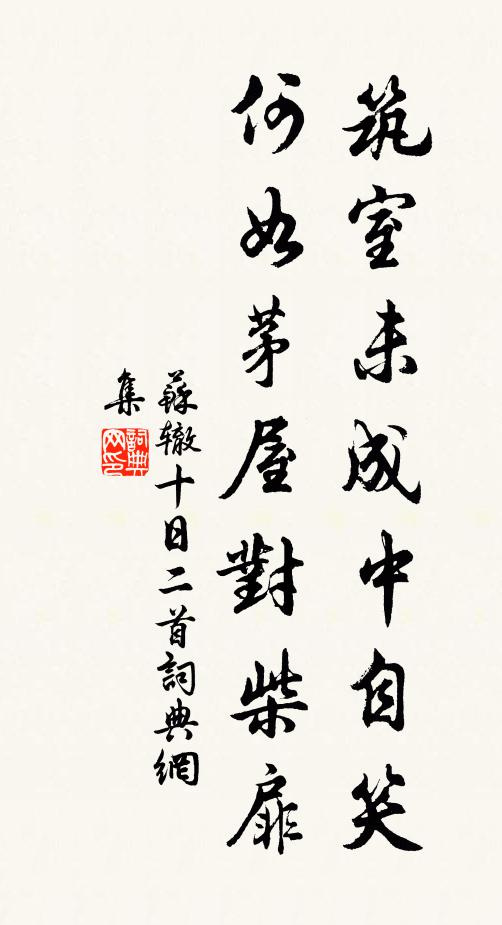 筑室未成中自笑
何如茅屋對柴扉
蘇辙十日二首詞典網
集
詞典
网印